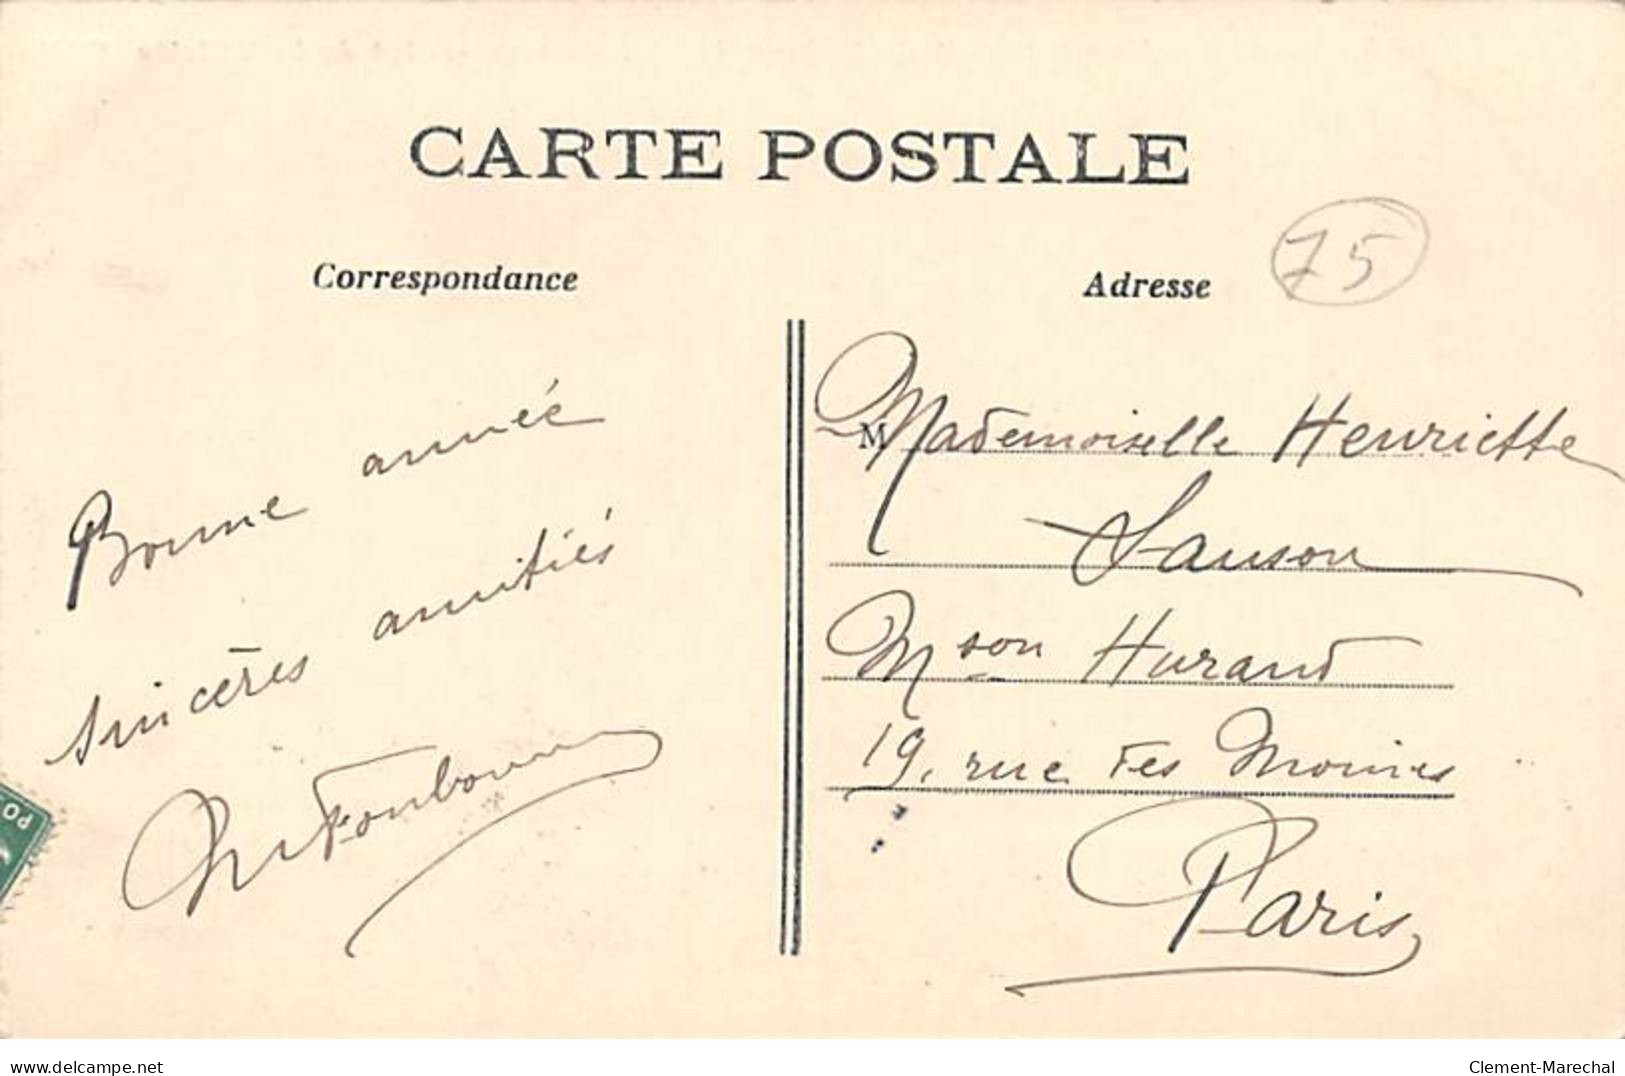 CARTE POSTALE
75
Correspondance
Adresse
Bonne année
sincères amitiés
M Mademoiselle Henriette
Sanson
Mson Hurand
19, rue des Moines
Paris
PO
delcampe.net
Clement-Marechal